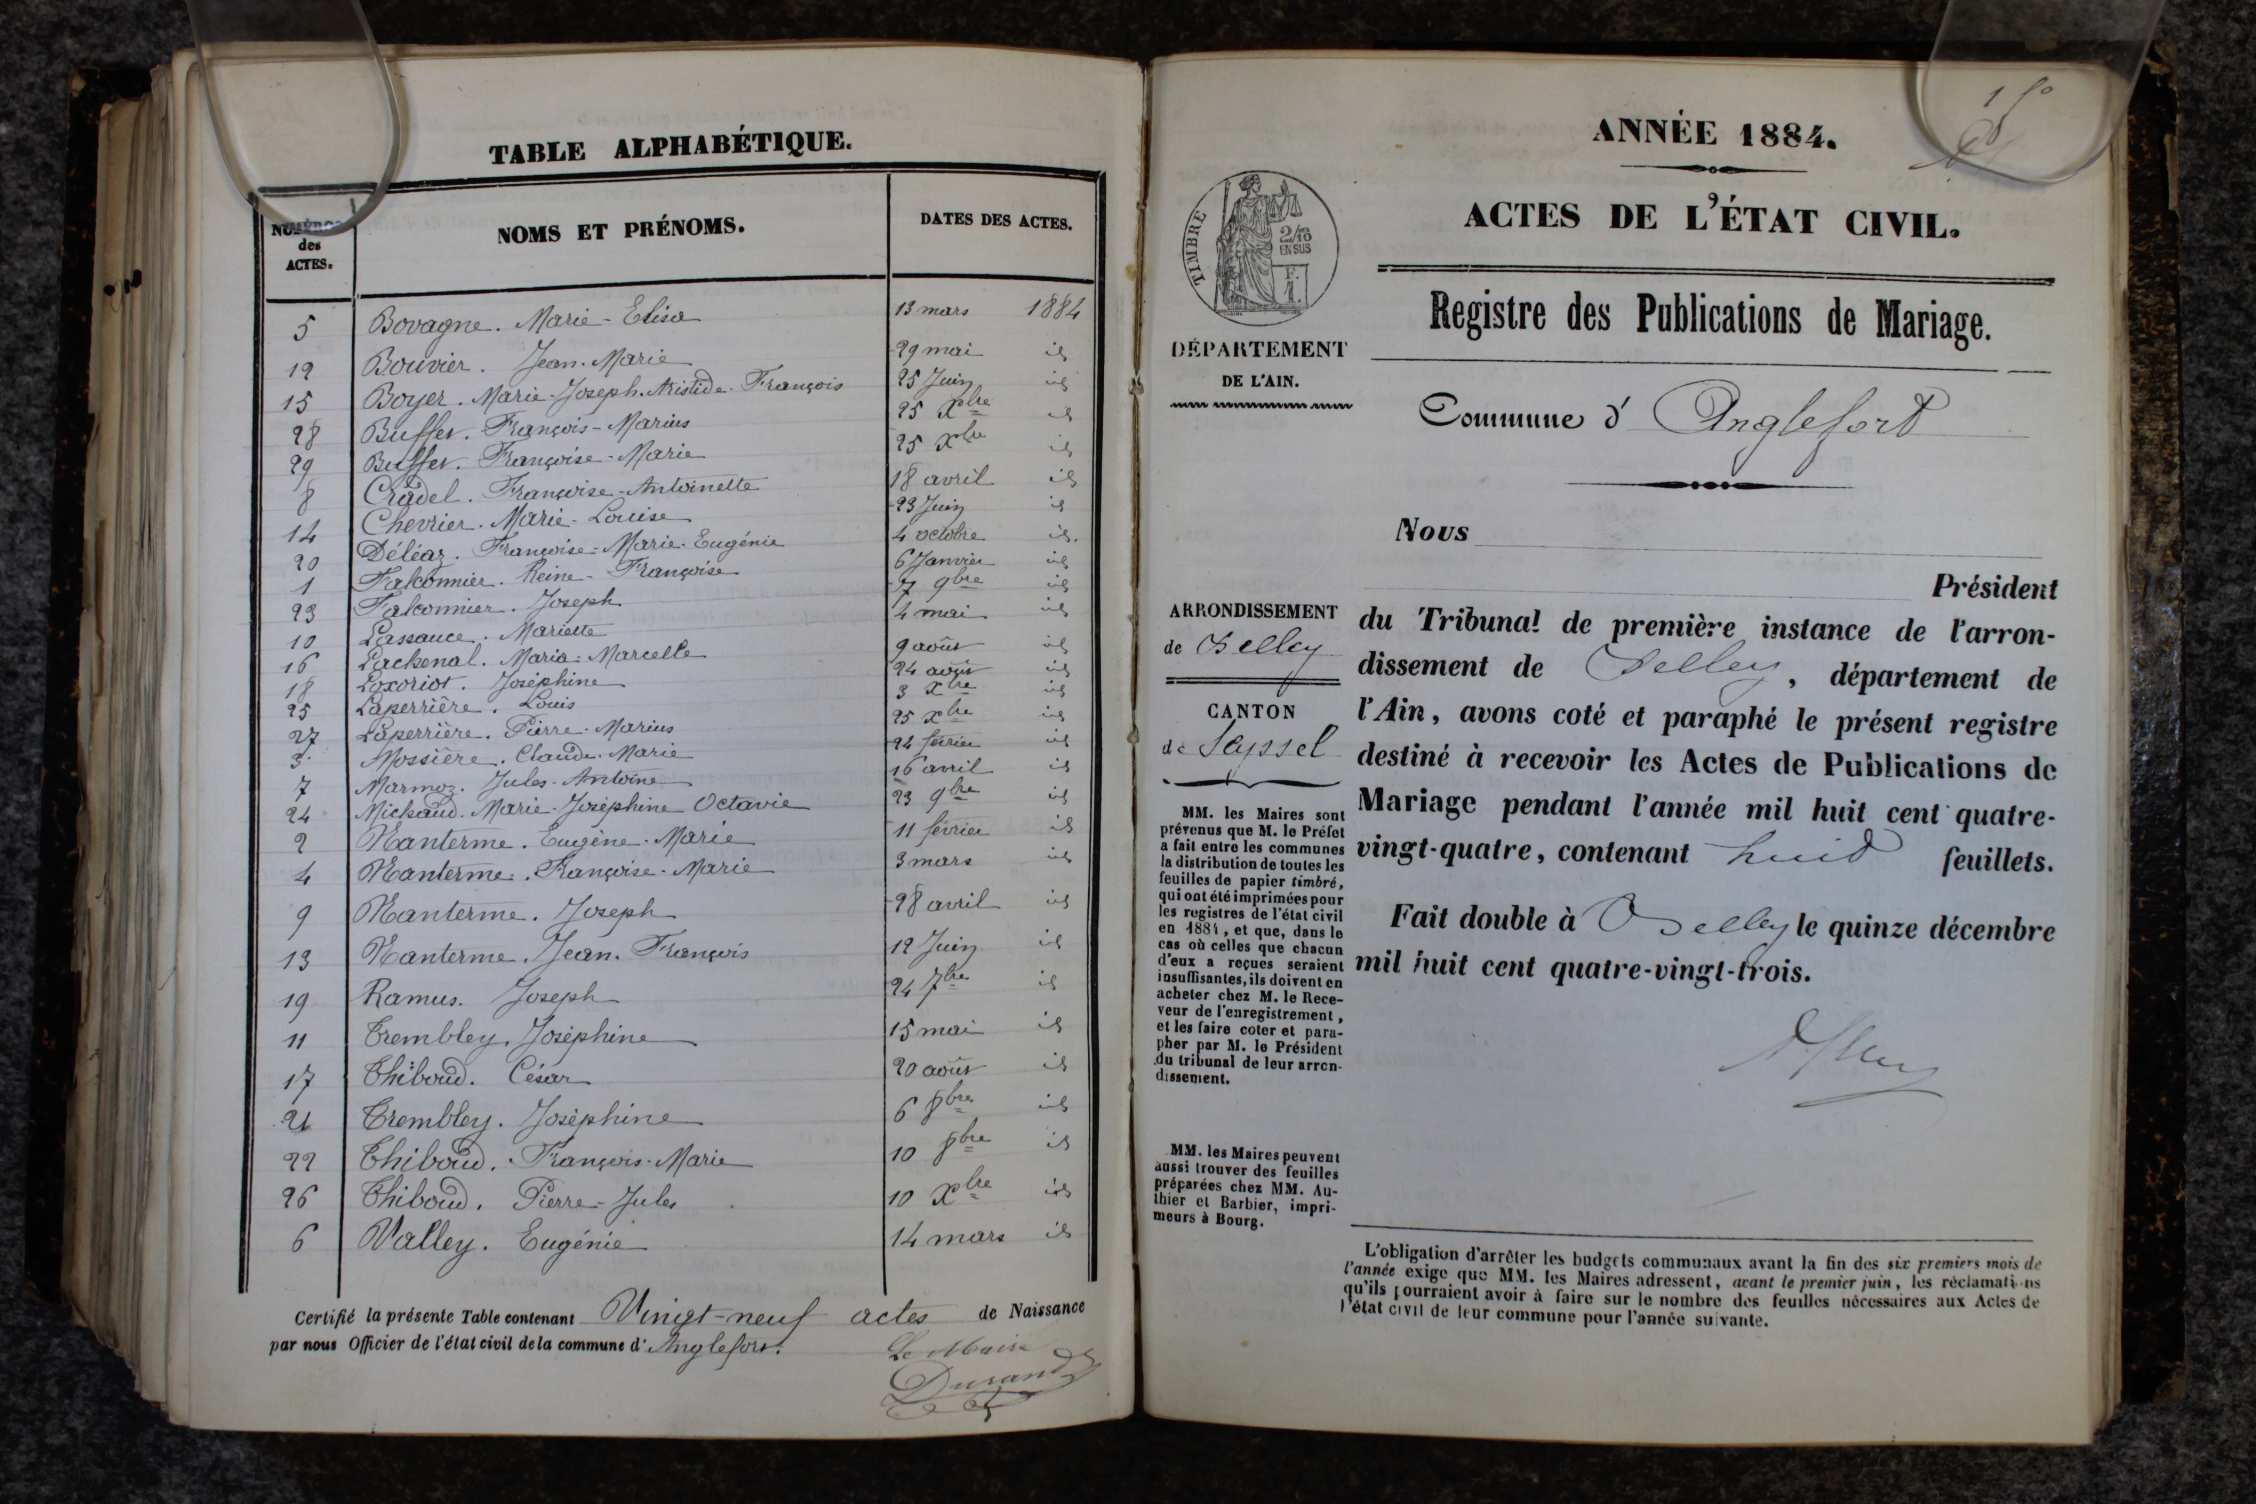 TABLE ALPHABÉTIQUE.
NUMÉROS
des
ACTES.
NOMS ET PRÉNOMS.
DATES DES ACTES.
5 Bovagne. Marie-Elisa 13 mars 1884
12 Bouvier. Jean-Marie 29 mai id
15 Boyer. Marie-Joseph-Aristide-François 25 Juin id
28 Buffet. François-Marius 25 Xbre id
29 Buffet. Françoise-Marie 25 Xbre id
8 Cradel. Françoise-Antoinette 18 avril id
14 Chevrier. Marie-Louise 23 Juin id
20 Déléaz. Françoise-Marie-Eugénie 4 octobre id.
1 Falconnier. Reine-Françoise 6 Janvier id
23 Falconnier. Joseph 7 9bre id
10 Lassauce. Mariette 4 mai id
16 Lachenal. Maria-Marcelle 9 août id
18 Loxoriot. Joséphine 24 août id
25 Laperrière. Louis 3 Xbre id
27 Laperrière. Pierre-Marius 25 Xbre id
3 Mossière. Claude-Marie 24 février id
7 Marmoz. Jules-Antoine 16 avril id
24 Michaud. Marie-Joséphine Octavie 23 9bre id
2 Nanterme. Eugène-Marie 11 février id
4 Nanterme. Françoise-Marie 3 mars id
9 Nanterme. Joseph 28 avril id
13 Nanterme. Jean-François 12 Juin id
19 Ramus. Joseph 24 7bre id
11 Trembley. Joséphine 15 mai id
17 Thiboud. César 20 août id
21 Trembley. Joséphine 6 8bre id
22 Thiboud. François-Marie 10 8bre id
26 Thiboud. Pierre-Jules 10 Xbre id
6 Valley. Eugénie 14 mars id
Certifié la présente Table contenant Vingt-neuf actes de Naissance
par nous Officier de l'état civil de la commune d'Anglefort.
Le Maire
Durand
1 fo
ANNÉE 1884.
ACTES DE L'ÉTAT CIVIL.
TIMBRE
2/10
EN SUS
F.
1.
Registre des Publications de Mariage.
DÉPARTEMENT
DE L'AIN.
Commune d' Anglefort
Nous
Président
du Tribunal de première instance de l'arron-
dissement de Belley, département de
l'Ain, avons coté et paraphé le présent registre
destiné à recevoir les Actes de Publications de
Mariage pendant l'année mil huit cent quatre-
vingt-quatre, contenant huit feuillets.
Fait double à Belley le quinze décembre
mil huit cent quatre-vingt-trois.
ARRONDISSEMENT
de Belley
CANTON
de Seyssel
MM. les Maires sont
prévenus que M. le Préfet
a fait entre les communes
la distribution de toutes les
feuilles de papier timbré,
qui ont été imprimées pour
les registres de l'état civil
en 1884, et que, dans le
cas où celles que chacun
d'eux a reçues seraient
insuffisantes, ils doivent en
acheter chez M. le Rece-
veur de l'enregistrement,
et les faire coter et para-
pher par M. le Président
du tribunal de leur arron-
dissement.
MM. les Maires peuvent
aussi trouver des feuilles
préparées chez MM. Au-
thier et Barbier, impri-
meurs à Bourg.
L'obligation d'arrêter les budgets communaux avant la fin des six premiers mois de
l'année exige que MM. les Maires adressent, avant le premier juin, les réclamations
qu'ils pourraient avoir à faire sur le nombre des feuilles nécessaires aux Actes de
l'état civil de leur commune pour l'année suivante.